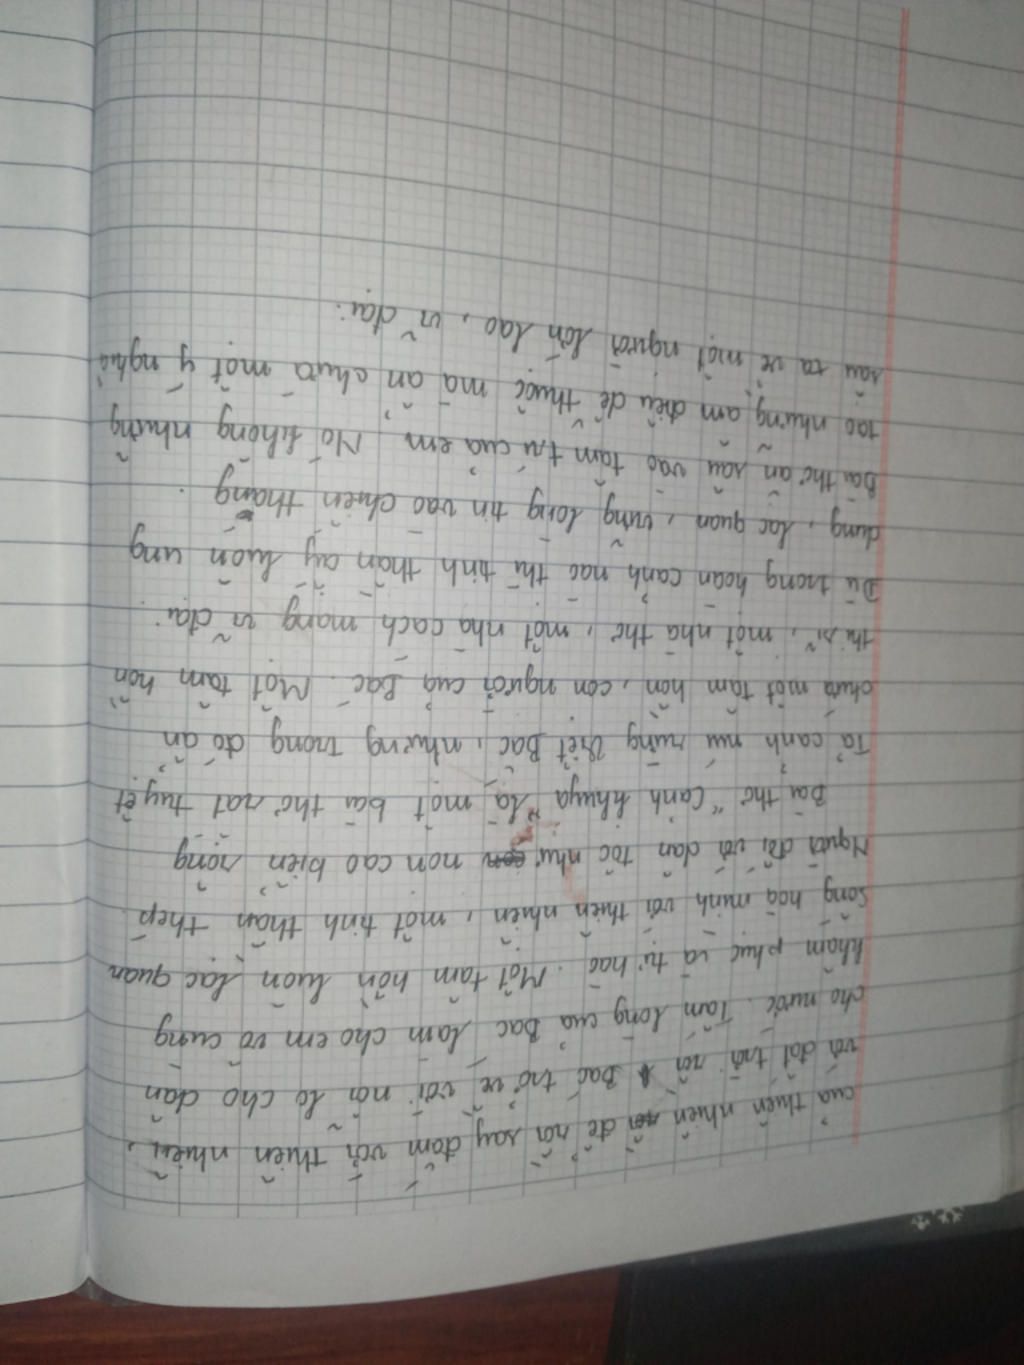 của thiên nhiên để rồi say đắm với thiên nhiên,
với đất trời rồi Bác trở về với nỗi lo cho dân
cho nước. Tấm lòng của Bác làm cho em vô cùng
khâm phục và tự hào. Một tâm hồn luôn lạc quan
sống hoà mình với thiên nhiên, một tinh thần thép.
Người đối với dân tộc như non cao biển rộng
Bài thơ "Cảnh khuya" là một bài thơ rất tuyệt
Tả cảnh núi rừng Việt Bắc, nhưng trong đó ẩn
chứa một tâm hồn, con người của Bác. Một tâm hồn
thi sĩ, một nhà thơ, một nhà cách mạng vĩ đại.
Dù trong hoàn cảnh nào thì tinh thần ấy luôn ung
dung, lạc quan, vững lòng tin vào chiến thắng.
Bài thơ ăn sâu vào tâm trí của em. Nó không những
tạo những âm điệu dễ thuộc mà ẩn chứa một ý nghĩa
sâu xa về một người lớn lao, vĩ đại.